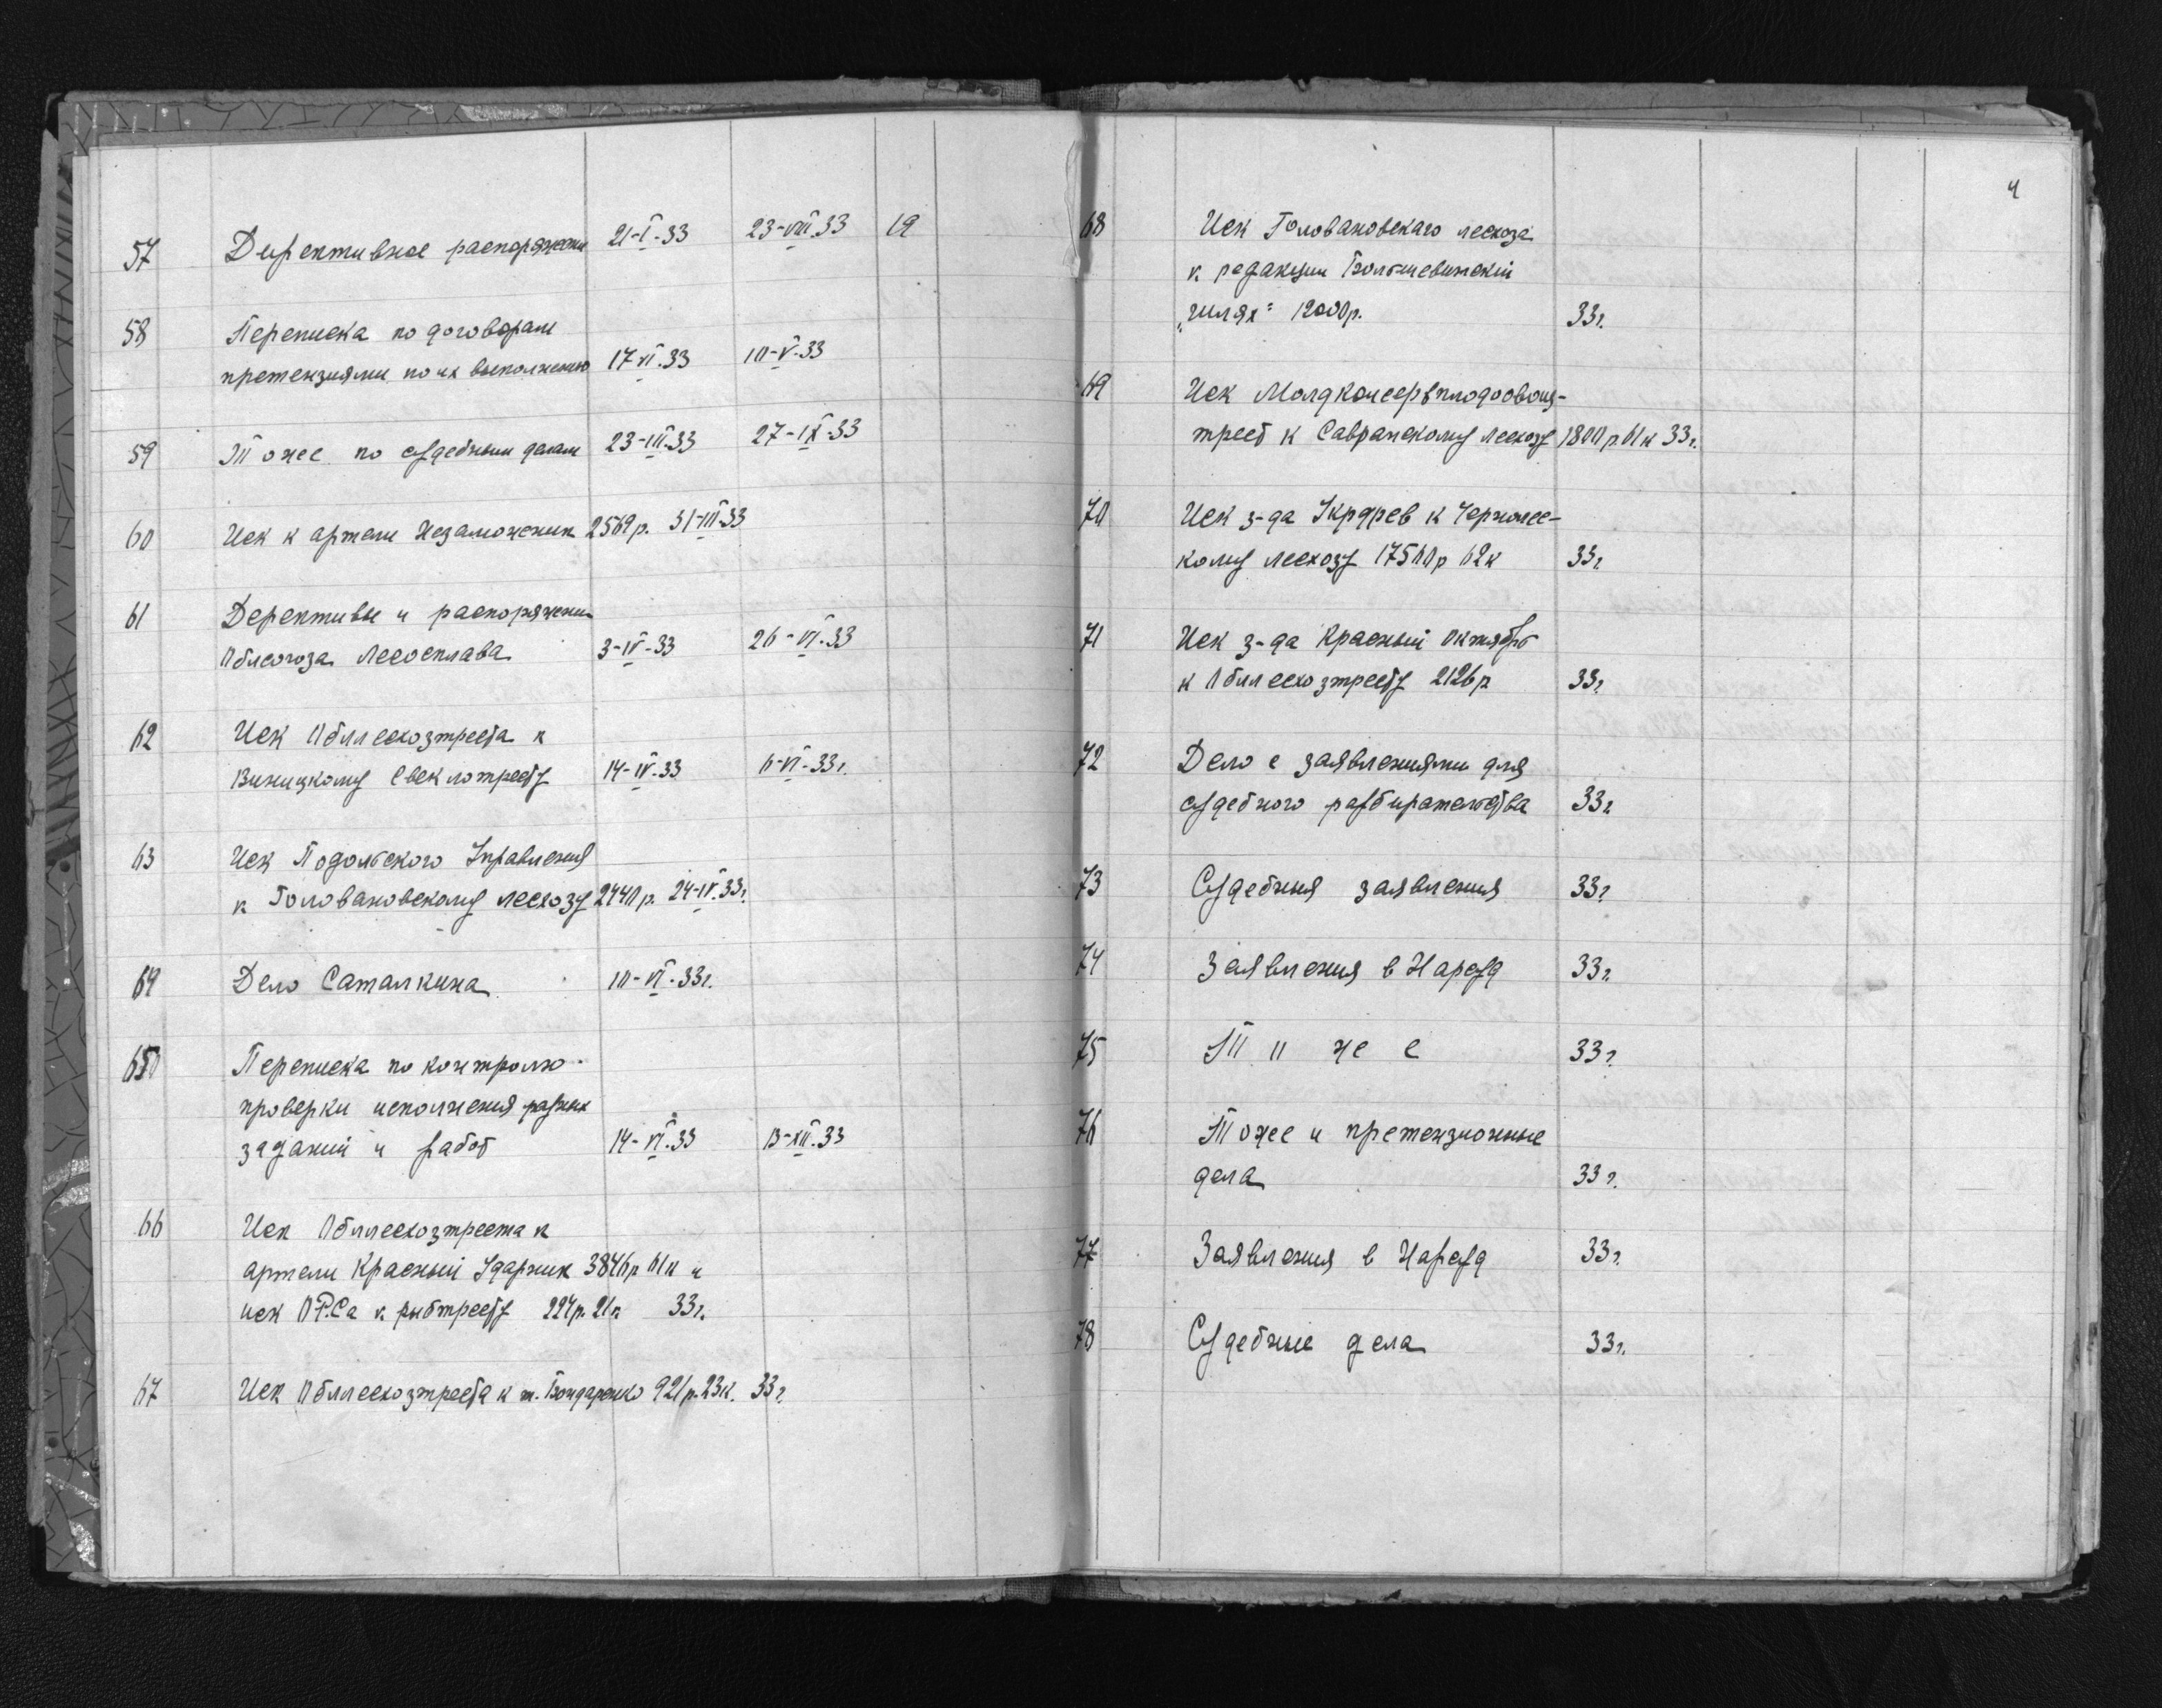 57 Директивное распоряжение 21-I-33 23-VIII.33 19
58 Переписка по договорам
претензиями по их выполнению 17-VI.33 10-V-33
59 Тоже по судебным делам 23-III-33 27-IX-33
60 Иск к артели Незаможник 2569р. 31-III-33
61 Дерективы и распоряжения
Облсоюза Лесосплава 3-IV-33 26-VI.33
62 Иск Обллесхозтреста к
Виницкому Свеклотресту 14-IV-33 6-VI-33г.
63 Иск Подольского Управления
к Головановскому лесхозу 2440р. 24-IV.33г.
64 Дело Саталкина 10-VI.33г.
65 Переписка по контролю
проверки исполнения разных
заданий и работ 14-VI.33 13-XII.33
66 Иск Обллесхозтреста к
артели Красный Ударник 3846р 61к и
иск ОРСа к рыбтресту 224р.21к 33г.
67 Иск Обллесхозтреста к т. Бондаренко 921р.23к. 33г.
4
68 Иск Головановскаго лесхоза
к редакции Большевикский
„Шлях" 12000р. 33г.
69 Иск Молдконсервплодоовощ-
трест к Савранскому лесхозу 1800р 61к 33г.
70 Иск з-да Укрдрев к Чернолес-
кому лесхозу 17500р 62к 33г
71 Иск з-да Красный Октябрь
к Обллесхозтресту 2126р 33г
72 Дело с заявлениями для
судебного разбирательства 33г.
73 Судебния заявления 33г
74 Заявления в Нарсуд 33г.
75 То же 33г.
76 Тоже и претензионные
дела 33г.
77 Заявления в Нарсуд 33г.
78 Судебные дела 33г.